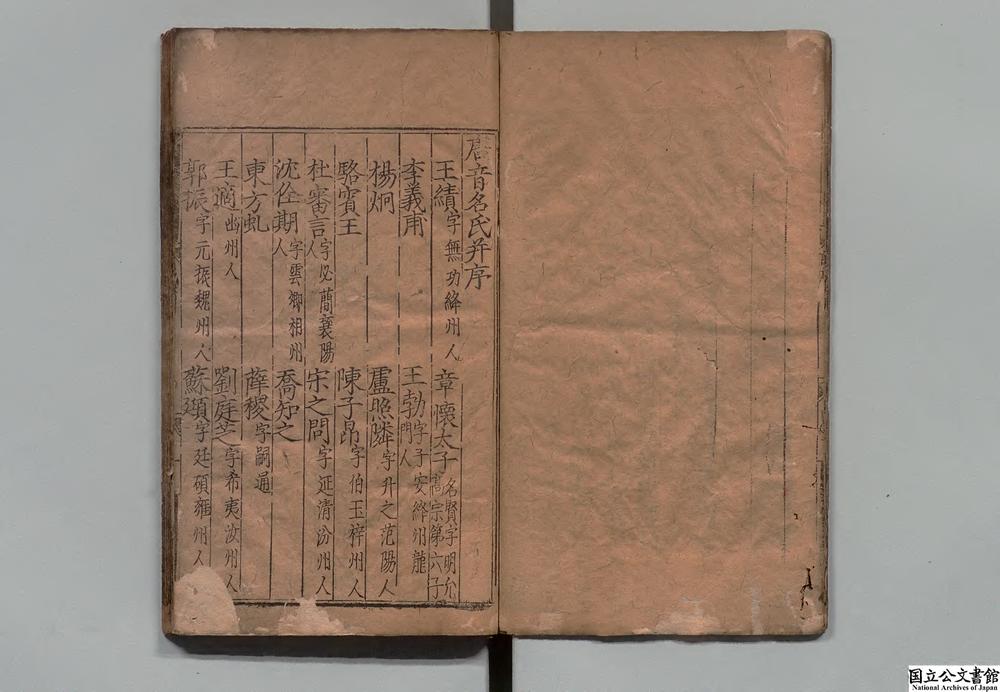 唐音名氏并序
王績字無功絳州人 章懷太子名賢字明允高宗第六子
李義甫 王勃字子安絳州龍門人
楊炯 盧照隣字升之范陽人
駱賓王 陳子昂字伯玉梓州人
杜審言字必簡襄陽人 宋之問字延清汾州人
沈佺期字雲卿相州人 喬知之
東方虬 薛稷字嗣通
王適幽州人 劉庭芝字希夷汝州人
郭振字元振魏州人 蘇頲字廷碩雍州人
国立公文書館
National Archives of Japan